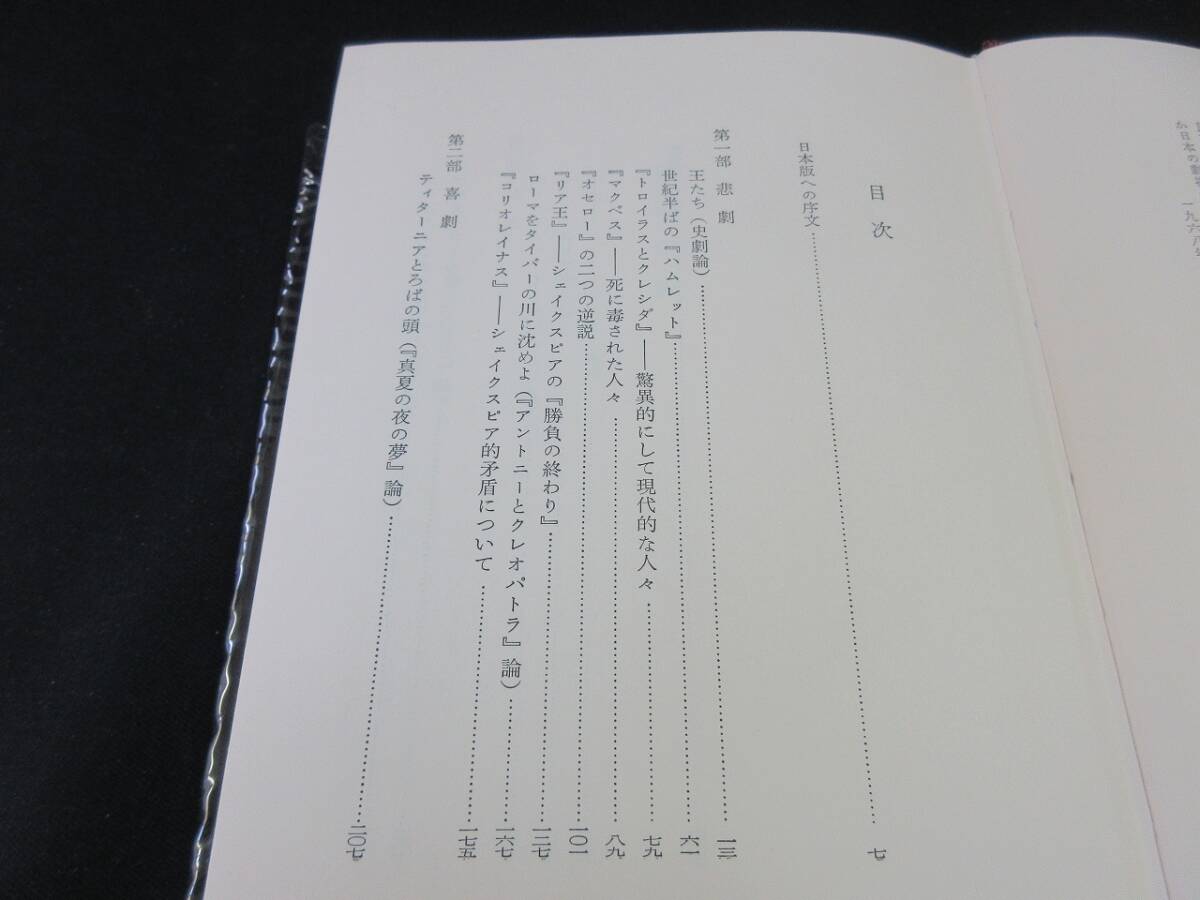 目次
日本版への序文……………………七
第一部 悲劇
王たち（史劇論）……………………一三
世紀半ばの『ハムレット』……………………六一
『トロイラスとクレシダ』――驚異的にして現代的な人々……………………七九
『マクベス』――死に毒された人々……………………八九
『オセロー』の二つの逆説……………………一〇一
『リア王』――シェイクスピアの『勝負の終わり』……………………一二七
ローマをタイバーの川に沈めよ（『アントニーとクレオパトラ』論）……………………一六七
『コリオレイナス』――シェイクスピア的矛盾について……………………一七五
第二部 喜劇
ティターニアとろばの頭（『真夏の夜の夢』論）……………………二〇七